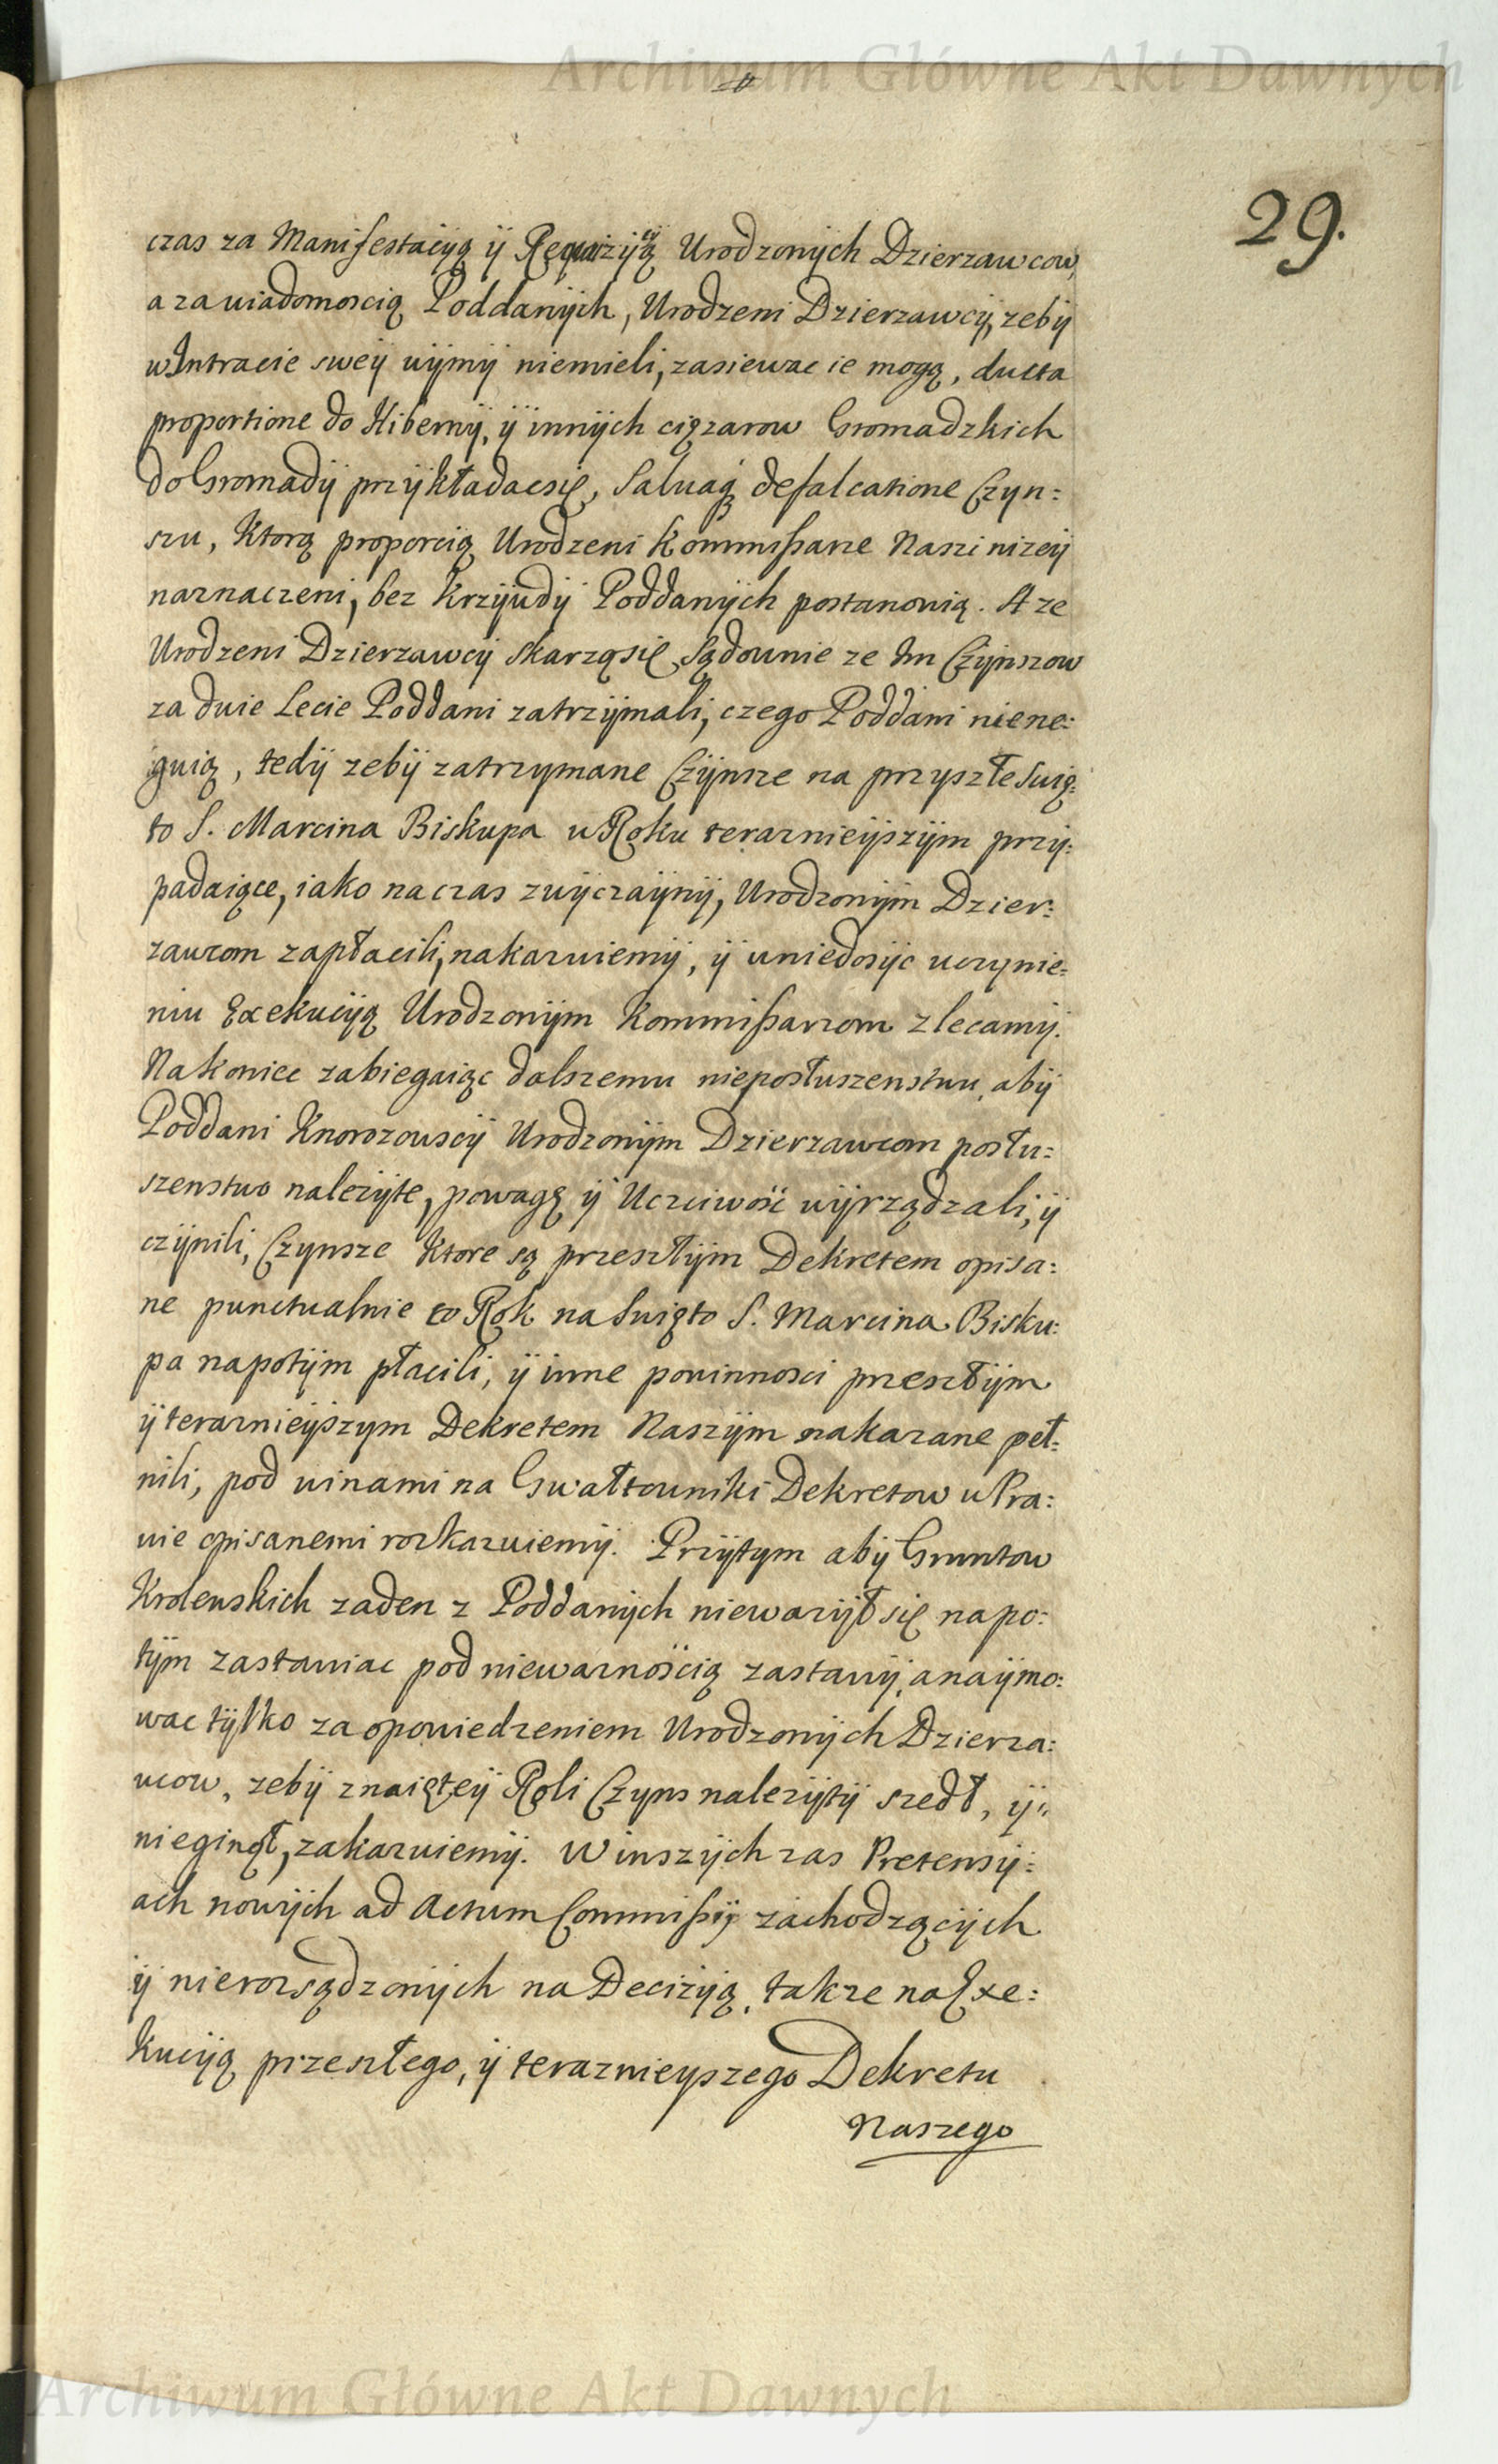 Archiwum Główne Akt Dawnych
29.
czas za Manifestacyą ÿ Requizycyą Urodzonÿch Dzierzawcow,
a za wiadomoscią Poddanÿch, Urodzeni Dzierzawcÿ, zebÿ
w Intracie sweÿ uÿmÿ niemieli, zasiewac ie mogą, ducta
proportione do Hibernÿ, ÿ innÿch ciązarow Gromadzkich
do Gromadÿ przÿkładacsię, Salvaq̨ defalcatione Czyn:
szu, Ktorą proporcią Urodzeni Kommissarze Naszi nizeÿ
naznaczeni, bez Krzÿwdÿ Poddanÿch postanowią. A ze
Urodzeni Dzierzawcÿ Skarząsię Sądownie ze Im Czÿnszow
za dwie Lecie Poddani zatrzÿmali, czego Poddani niene:
guią, tedÿ zebÿ zatrzymane Czÿnsze na przyszłe Swię:
to S. Marcina Biskupa w Roku teraznieÿszÿm przÿ:
padaiące, iako na czas zwÿczaÿnÿ, Urodzonÿm Dzier:
zawcom zapłacili, nakazuiemÿ, ÿ w niedosÿc uczynie:
niu Exekucÿą Urodzonÿm Kommissarzom zlecamÿ.
Nakoniec zabiegaiąc dalszemu nieposłuszenstwu, abÿ
Poddani Knorozowscÿ Urodzonÿm Dzierzawcom posłu:
szenstwo nalezÿte, powagę ÿ Uczciwość wÿrządzali, ÿ
czÿnili, Czynsze Ktore są przeszłÿm Dekretem opisa:
ne punctualnie co Rok na Swięto S. Marcina Bisku:
pa napotÿm płacili, ÿ inne powinnosci przeszłÿm
ÿ teraznieÿszym Dekretem Naszÿm nakazane peł:
nili, pod winami na Gwałtowniki Dekretow w Pra:
wie opisanemi rozkazuiemÿ. Przÿtym abÿ Gruntow
Krolewskich zaden z Poddanÿch niewazÿł się napo:
tÿm zastawiac pod niewaznością zastawÿ, anaÿmo:
wac tÿlko za opowiedzeniem Urodzonÿch Dzierza:
wcow, zebÿ z naięteÿ Roli Czyns nalezÿtÿ szedł, ÿ
nieginął, zakazuiemÿ. W inszÿch zas Pretensÿ:
ach nowÿch ad Actum Commissÿ zachodzącÿch
ÿ nierozsądzonÿch na Decizÿą, takze na Exe:
kucÿą przeszłego, ÿ terazniejszego Dekretu
Naszego
Archiwum Główne Akt Dawnych